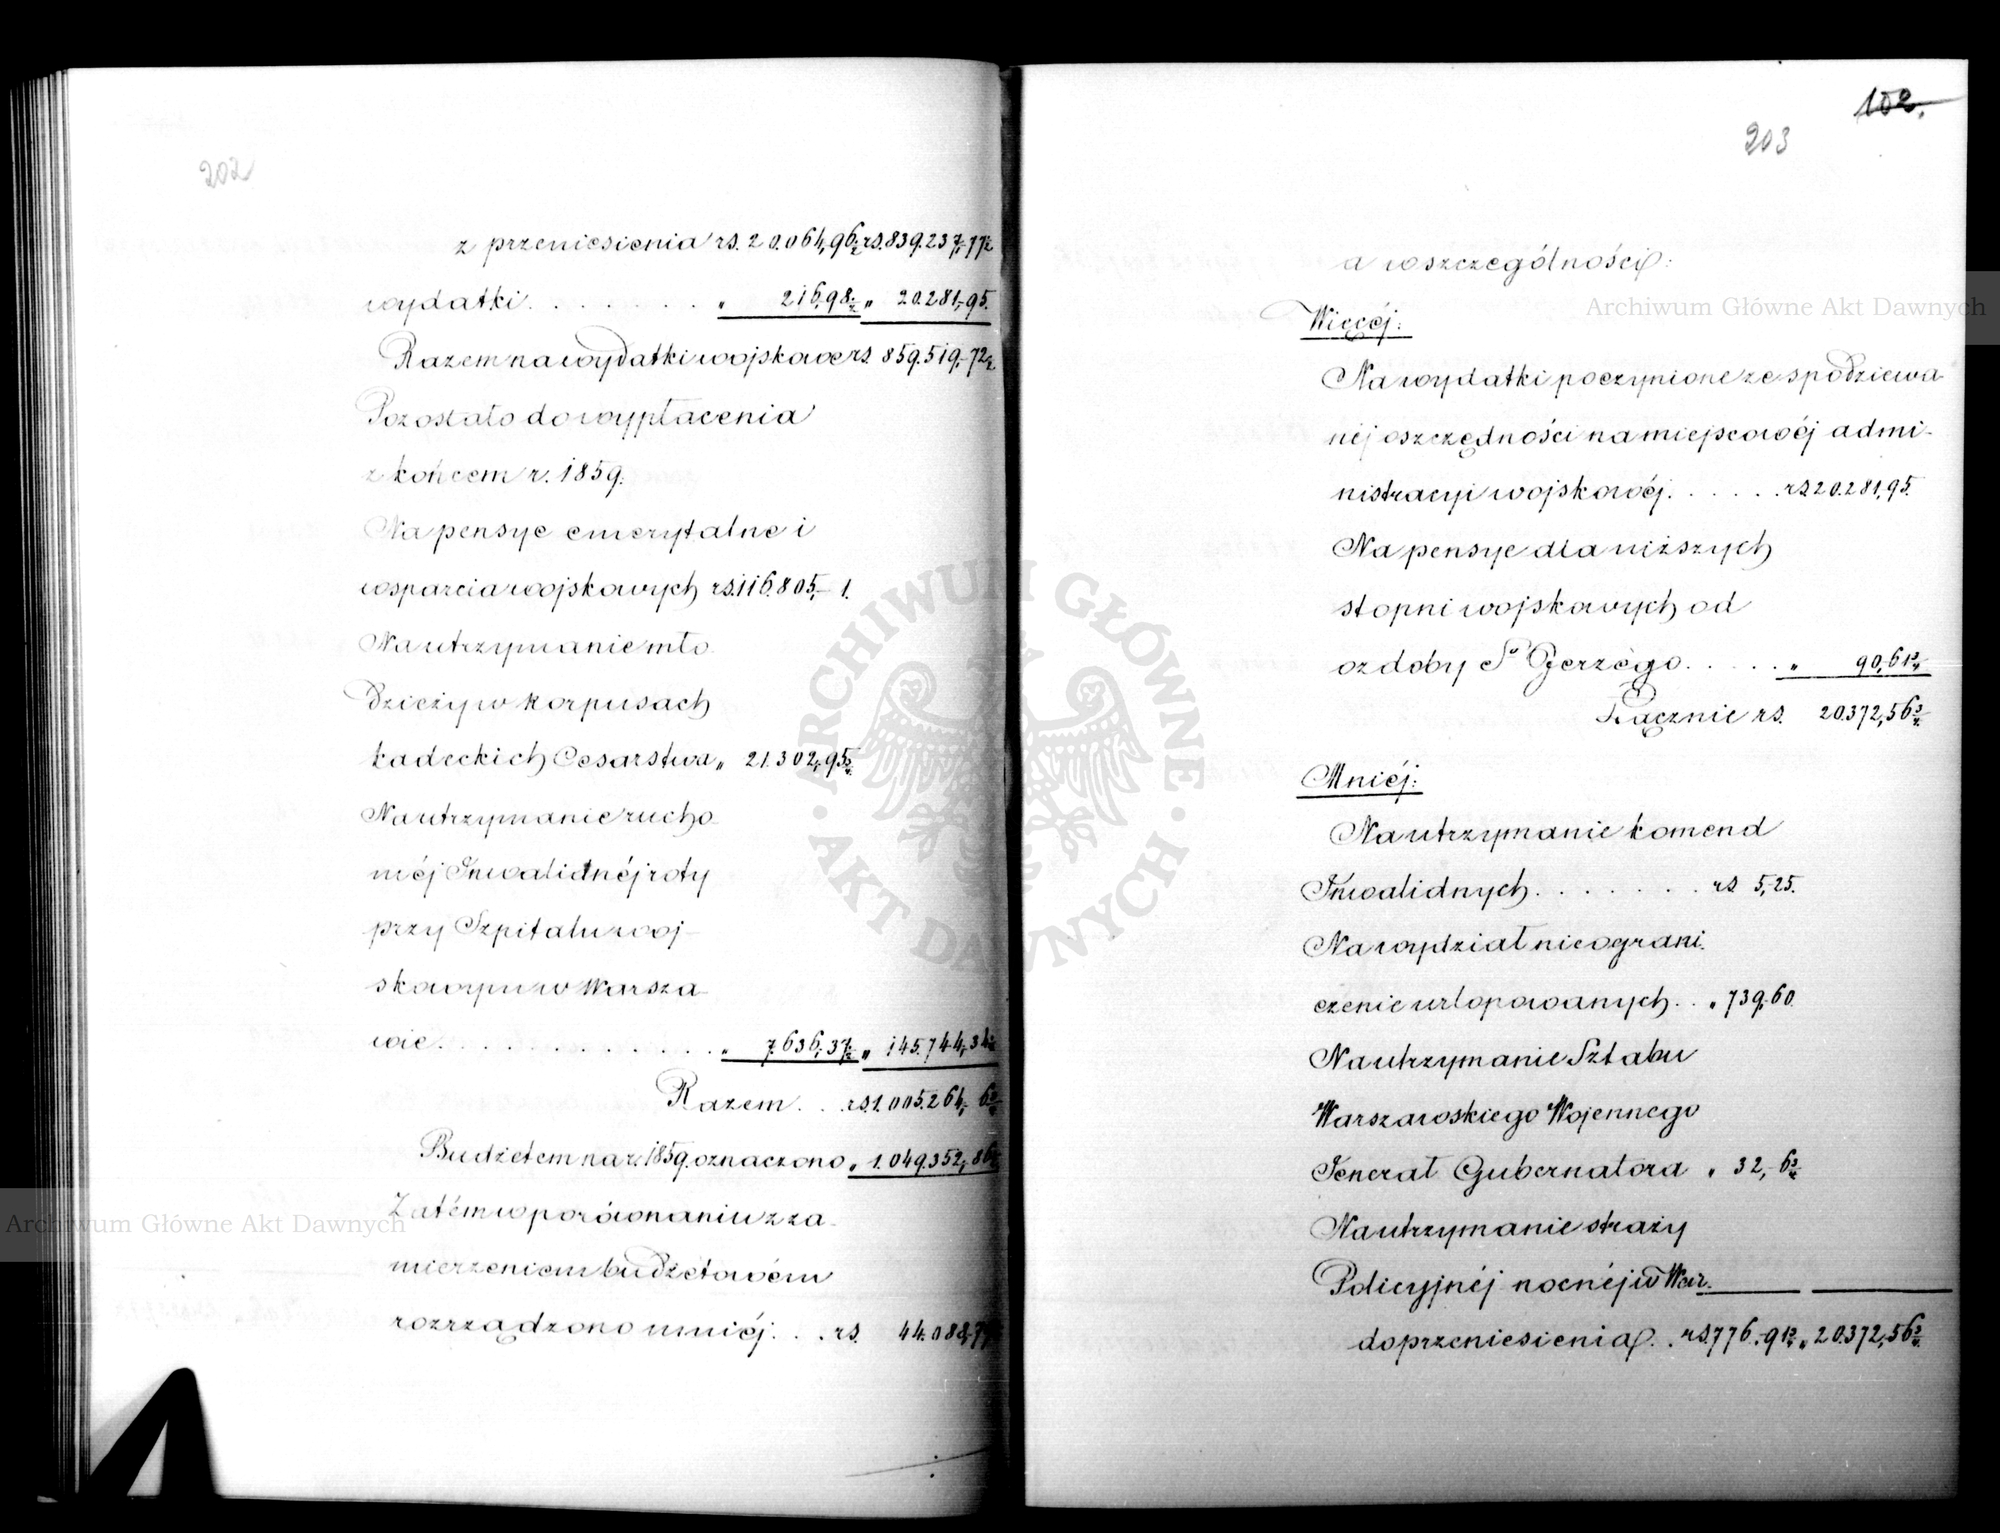 202
z przeniesienia rs. 20.064,96½ rs. 839.237,77½
wydatki . . . . . . . . . „ 216,98½ „ 20.281,95.
Razem na wydatki wojskowe rs. 859.519,72½
Pozostało do wypłacenia
z końcem r. 1859.
Na pensye emerytalne i
wsparcia wojskowych rs. 116.805,1.
Na utrzymanie mło
dzieży w korpusach
kadeckich Cesarstwa „ 21.302,95¾
Na utrzymanie rucho
méj Inwalidnéj roty
przy Szpitalu woj-
skowym w Warsza-
wie . . . . . . . . . . . . „ 7.636,37½ „ 145.744,34
Razem . . . rs. 1.005.264, 6¾
Budżetem na r. 1859. oznaczono „ 1.049.352,86
Zatém w porównaniu z za-
mierzeniem budżetowém
rozrządzono mniéj . . . rs. 44.088,79
102.
203
a w szczególności:
Więcéj:
Na wydatki poczynione ze spodziewa-
néj oszczędności na miejscowéj admi-
nistracyi wojskowéj . . . . . rs. 20.281,95.
Na pensye dla niższych
stopni wojskowych od
ozdoby Sgo Jerzego . . . . . „ 90,61¾
Łącznie rs. 20.372,56¾
Mniéj:
Na utrzymanie komend
Inwalidnych . . . . . . . rs. 5,25.
Na wydział nieograni-
czenie urlopowanych . . „ 739,60
Na utrzymanie Sztabu
Warszawskiego Wojennego
Jenerał Gubernatora „ 32, 6¾
Na utrzymanie straży
Policyjnéj nocnéj w War-
do przeniesienia . . rs. 776,91¾ „ 20.372,56¾
Archiwum Główne Akt Dawnych
Archiwum Główne Akt Dawnych
ARCHIWUM GŁÓWNE · AKT DAWNYCH ·